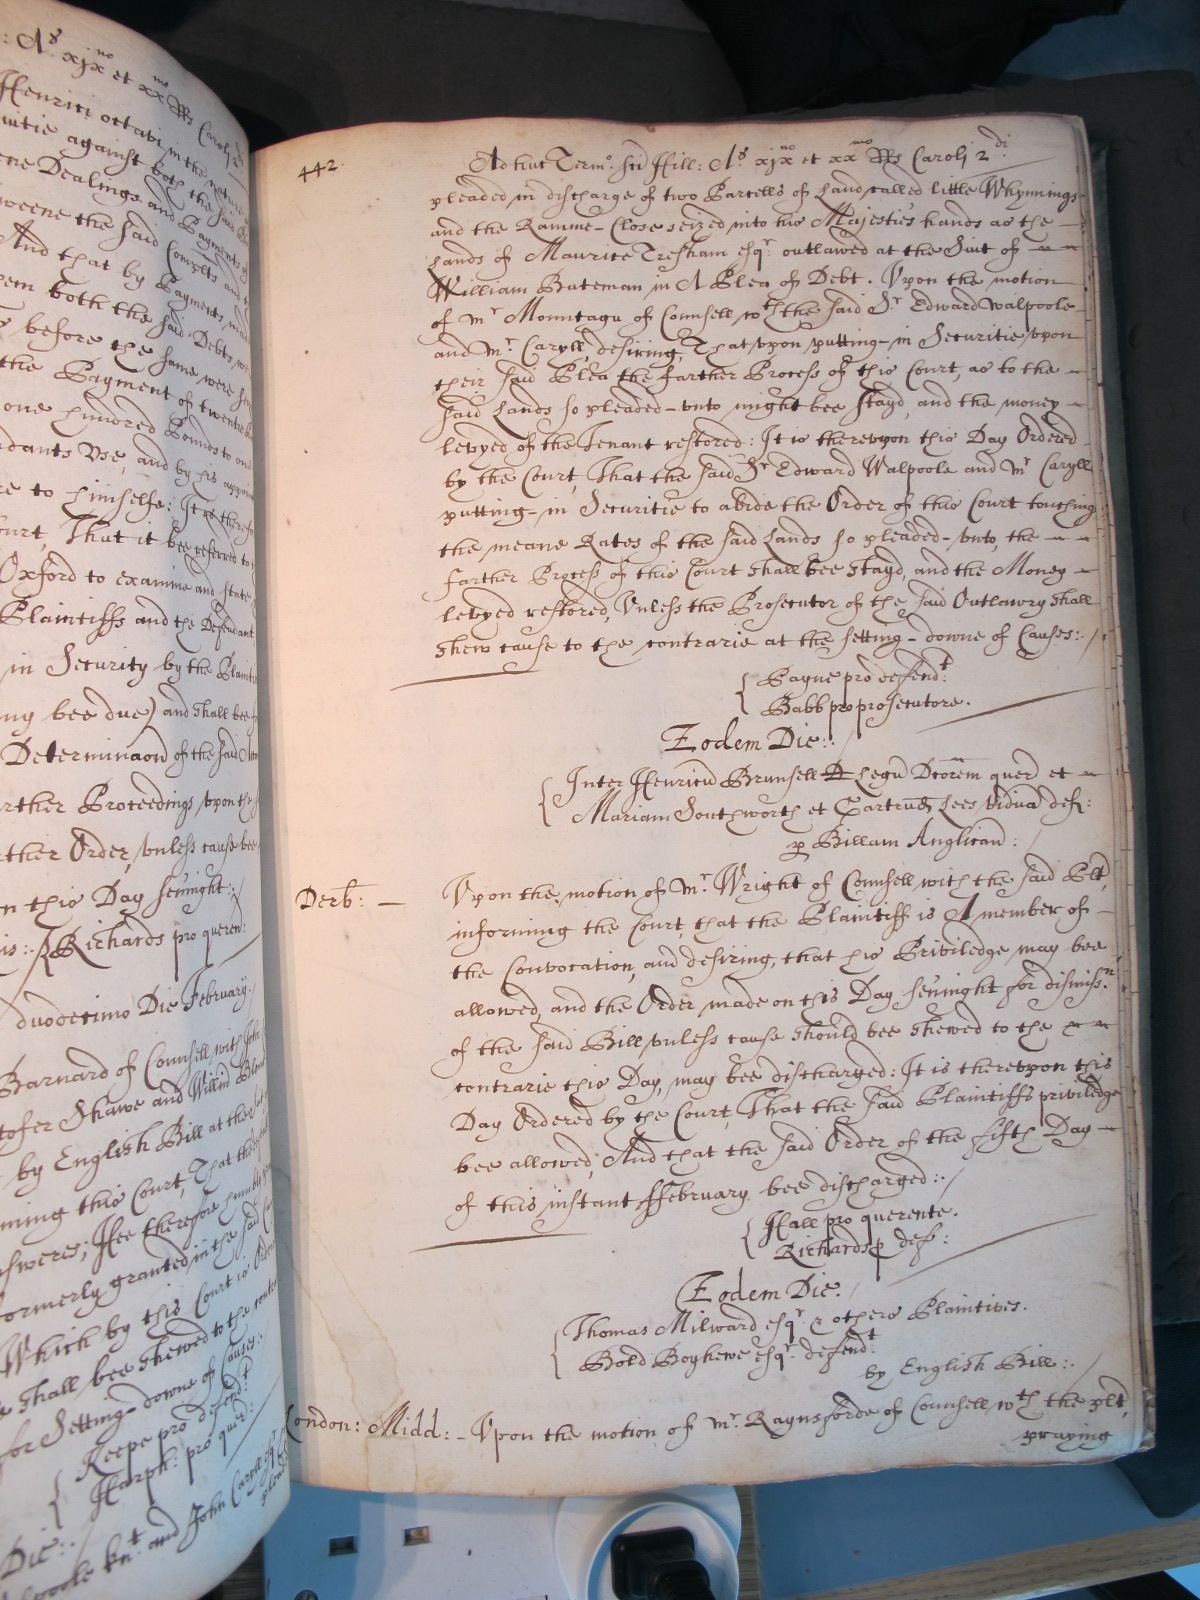 : A.o xjx no et xx mo R Rs Caroli 2 di
Henrici octavi in the nature
against both the said
Dealings, and Payments
tweene the said Complts and
And that by Payments, made
them both the said Debts,
before the same were
the Payment of twentie
one hundred Pounds to
dants Use, and by his appoin
re to himselfe: It is therefo
Court, That it bee referred to
Oxford to examine and state
Plaintiffs and the Defendant
in Security by the Plaint
ng bee due) and shall bee
Determinaon of the said
rther Proceedings upon the
rther Order, unless cause bee
n this Day sennight:
is: Richards pro queren:
duodecimo Die February.
Barnard of Counsell with
tofer Shawe and Willm
by English Bill at the
ming this Court, That the
nsweres; Hee therefore humbly
formerly granted in the said
Which by this Court is Orde
e shall bee shewed to the contra
for Setting- downe of Causes:
Keepe pro defendt:
Harph: pro quer:
Die:
lpoole knt: and John Caryll esqr
plead
442.
Adhuc Termo: sci Hill: Ao xjx no et xx mo R Rs Caroli 2 di:
pleaded in discharge of two Parcells of Land called little Whynnings
and the Ramme-Close seized into his Majesties hands as the —
Lands of Maurice Tresham esqr: outlawed at the Suit of — —
William Bateman in A Plea of Debt. Upon the motion
of mr: Mountagu of Counsell wth the said Sr: Edward Walpoole
and Mr: Caryll, desiring, That upon putting-in Securitie upon
their said Plea the farther Process of this Court, as to the —
said Lands so pleaded-unto might bee stayd, and the money —
levyed of the Tenant restored: It is thereupon this Day Ordered
by the Court, That the said Sr: Edward Walpoole and Mr: Caryll
putting-in Securitie to abide the Order of this Court touching
the meane Rates of the said Lands so pleaded-unto, the — —
farther Process of this Court shall bee stayd, and the Money —
levyed restored, Unless the Prosecutor of the said Outlawry shall
shew cause to the contrarie at the setting-downe of Causes:
Payne pro defendt:
Babb pro prosecutore.
Eodem Die:
Inter Henricu Brunsell Legu Dcorem quer et —
Mariam Southworth et Gartrud Lees vidua def:
p Billam Anglican:
Derb: — Upon the motion of Mr: Wright of Counsell with the said Plt,
informing the Court, that the Plaintiff is A member of —
the Convocation, and desiring, that his Priviledge may bee
allowed, and the Order made on this Day sennight for dismissn:
of the said Bill unless cause should bee shewed to the — —
contrarie this Day, may bee discharged: It is thereupon this
Day Ordered by the Court, That the said Plaintiffs priviledge
bee allowed, And that the said Order of the fifth Day —
of this instant ffebruary bee discharged:
Hall pro querente.
Richards p def:
Eodem Die.
Thomas Milward esqr: & others Plaintives.
Bold Boghewe esqr: defendt:
by English Bill:
London: Midd: - Upon the motion of Mr: Raynsforde of Counsell wth the plt,
praying